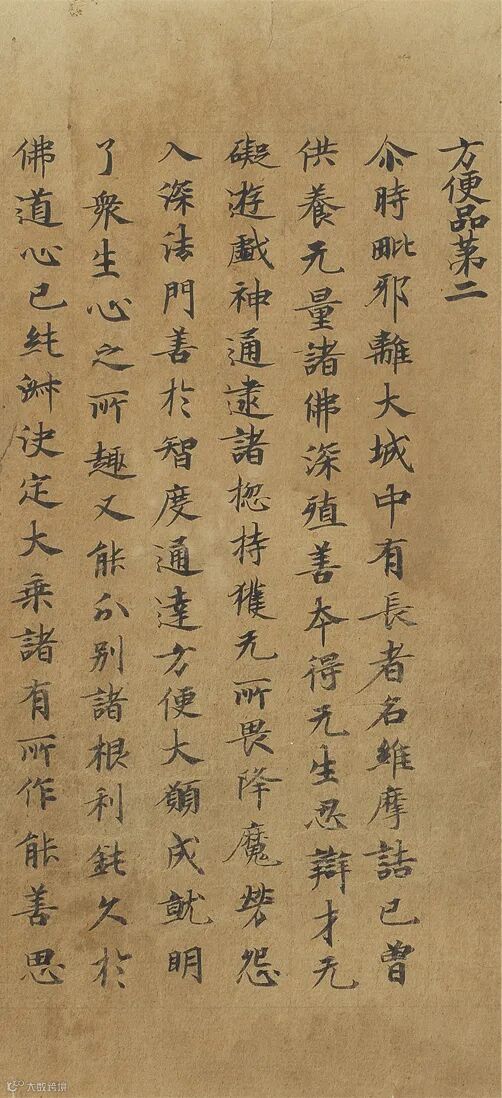 方便品第二
尒時毗邪離大城中有長者名維摩詰已曾
供養无量諸佛深殖善本得无生忍辯才无
礙遊戲神通逮諸揔持獲无所畏降魔勞怨
入深法門善於智度通達方便大願成就明
了衆生心之所趣又能分別諸根利鈍久於
佛道心已純淑決定大乘諸有所作能善思
大数跨境